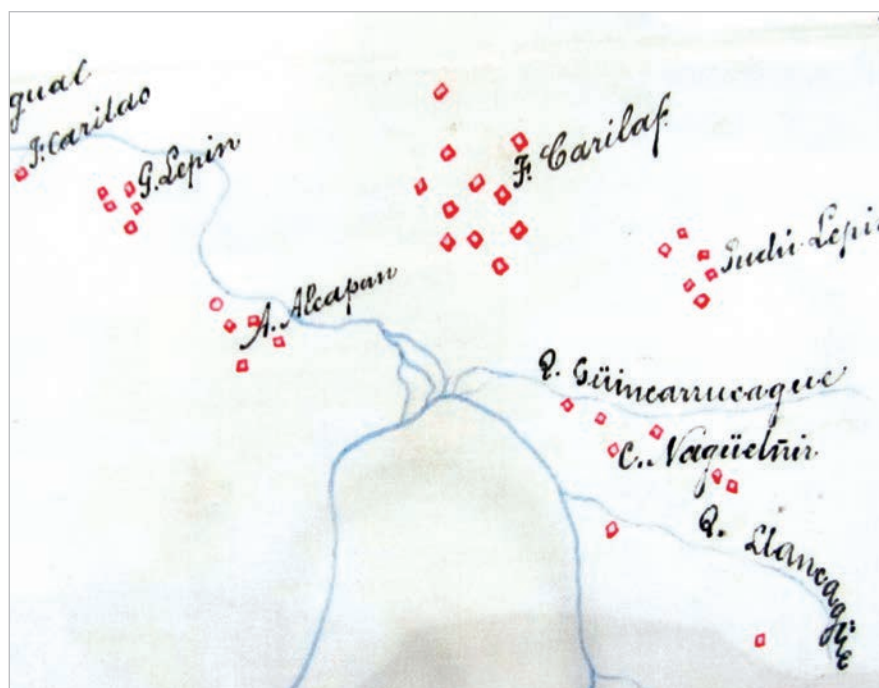 gual
F. Carilao
G. Lepin
F. Carilaf.
A. Alcapan
Lepin
Q. Güincarrucague
C. Nagüelñir
Q. Llancagüe